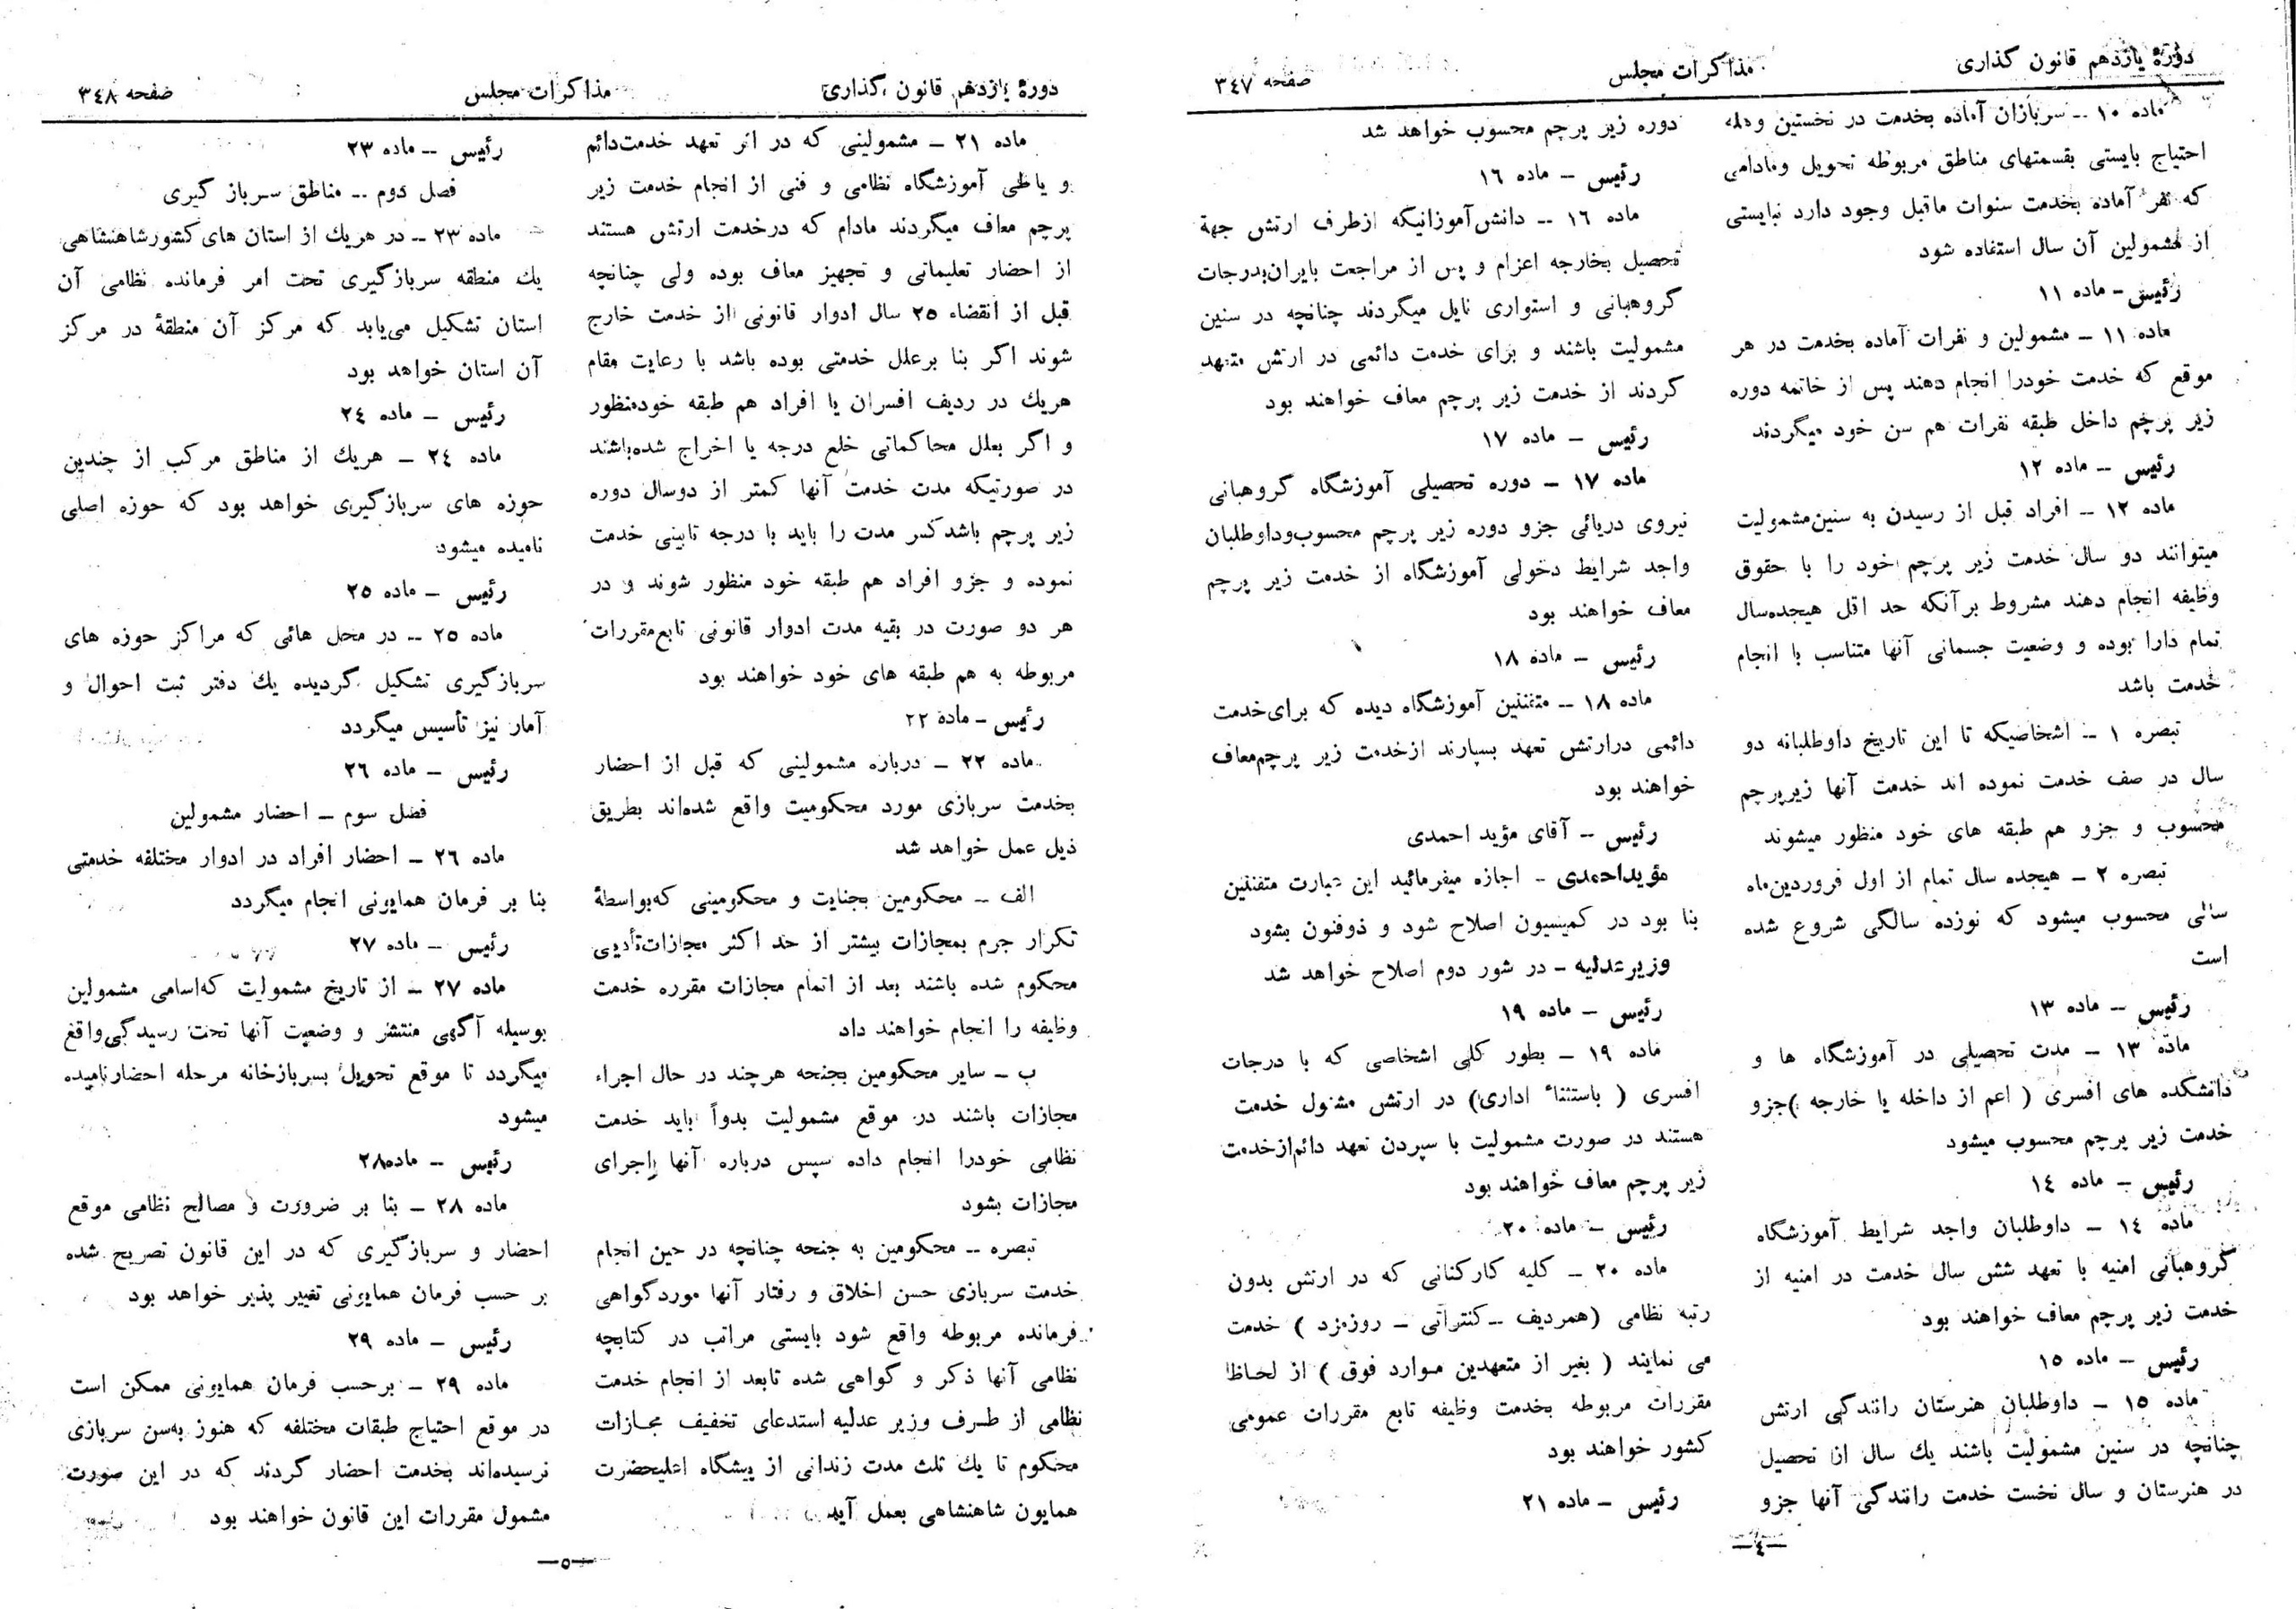 دورهٔ یازدهم قانون گذاری
مذاکرات مجلس
صفحه ۳٤۷
ماده ۱۰ ــ سربازان آماده بخدمت در نخستین وهله
احتیاج بایستی بقسمتهای مناطق مربوطه تحویل ومادامی
که نفر آماده بخدمت سنوات ماقبل وجود دارد نبایستی
از مشمولین آن سال استفاده شود
رئیس ـ ماده ۱۱
ماده ۱۱ ــ مشمولین و نفرات آماده بخدمت در هر
موقع که خدمت خودرا انجام دهند پس از خاتمه دوره
زیر پرچم داخل طبقه نفرات هم سن خود میگردند
رئیس ــ ماده ۱۲
ماده ۱۲ ــ افراد قبل از رسیدن به سنین‌مشمولیت
میتوانند دو سال خدمت زیر پرچم خود را با حقوق
وظیفه انجام دهند مشروط برآنکه حد اقل هیجده‌سال
تمام دارا بوده و وضعیت جسمانی آنها متناسب با انجام
خدمت باشد
تبصره ۱ ــ اشخاصیکه تا این تاریخ داوطلبانه دو
سال در صف خدمت نموده اند خدمت آنها زیرپرچم
محسوب و جزو هم طبقه های خود منظور میشوند
تبصره ۲ ــ هیجده سال تمام از اول فروردین‌ماه
سالی محسوب میشود که نوزده سالگی شروع شده
است
رئیس ــ ماده ۱۳
ماده ۱۳ ــ مدت تحصیلی در آموزشگاه ها و
دانشکده های افسری ( اعم از داخله یا خارجه )جزو
خدمت زیر پرچم محسوب میشود
رئیس ــ ماده ۱٤
ماده ۱٤ ــ داوطلبان واجد شرایط آموزشگاه
گروهبانی امنیه با تعهد شش سال خدمت در امنیه از
خدمت زیر پرچم معاف خواهند بود
رئیس ــ ماده ۱٥
ماده ۱٥ ــ داوطلبان هنرستان رانندگی ارتش
چنانچه در سنین مشمولیت باشند یك سال از تحصیل
در هنرستان و سال نخست خدمت رانندگی آنها جزو
دوره زیر پرچم محسوب خواهد شد
رئیس ــ ماده ۱٦
ماده ۱٦ ــ دانش‌آموزانیکه ازطرف ارتش جهة
تحصیل بخارجه اعزام و پس از مراجعت بایران‌بدرجات
گروهبانی و استواری نایل میگردند چنانچه در سنین
مشمولیت باشند و برای خدمت دائمی در ارتش متعهد
گردند از خدمت زیر پرچم معاف خواهند بود
رئیس ــ ماده ۱۷
ماده ۱۷ ــ دوره تحصیلی آموزشگاه گروهبانی
نیروی دریائی جزو دوره زیر پرچم محسوب‌وداوطلبان
واجد شرایط دخولی آموزشگاه از خدمت زیر پرچم
معاف خواهند بود
رئیس ــ ماده ۱۸
ماده ۱۸ ــ متفننین آموزشگاه دیده که برای‌خدمت
دائمی درارتش تعهد بسپارند ازخدمت زیر پرچم‌معاف
خواهند بود
رئیس ــ آقای مؤید احمدی
مؤیداحمدی ــ اجازه میفرمائید این عبارت متفننین
بنا بود در کمیسیون اصلاح شود و ذوفنون بشود
وزیرعدلیه ــ در شور دوم اصلاح خواهد شد
رئیس ــ ماده ۱۹
ماده ۱۹ ــ بطور کلی اشخاصی که با درجات
افسری ( باستثناء اداری) در ارتش مشغول خدمت
هستند در صورت مشمولیت با سپردن تعهد دائم‌ازخدمت
زیر پرچم معاف خواهند بود
رئیس ــ ماده ۲۰
ماده ۲۰ ــ کلیه کارکنانی که در ارتش بدون
رتبه نظامی (همردیف ــ کنتراتی ــ روزمزد ) خدمت
می نمایند ( بغیر از متعهدین موارد فوق ) از لحاظ
مقررات مربوطه بخدمت وظیفه تابع مقررات عمومی
کشور خواهند بود
رئیس ــ ماده ۲۱
ــ٤ــ
دورهٔ یازدهم قانون گذاری
مذاکرات مجلس
صفحه ۳٤۸
ماده ۲۱ ــ مشمولینی که در اثر تعهد خدمت‌دائم
و یاطی آموزشگاه نظامی و فنی از انجام خدمت زیر
پرچم معاف میگردند مادام که درخدمت ارتش هستند
از احضار تعلیماتی و تجهیز معاف بوده ولی چنانچه
قبل از انقضاء ۲٥ سال ادوار قانونی از خدمت خارج
شوند اگر بنا برعلل خدمتی بوده باشد با رعایت مقام
هریك در ردیف افسران یا افراد هم طبقه خودمنظور
و اگر بعلل محاکماتی خلع درجه یا اخراج شده‌باشند
در صورتیکه مدت خدمت آنها کمتر از دوسال دوره
زیر پرچم باشدکسر مدت را باید با درجه تابینی خدمت
نموده و جزو افراد هم طبقه خود منظور شوند و در
هر دو صورت در بقیه مدت ادوار قانونی تابع‌مقررات
مربوطه به هم طبقه های خود خواهند بود
رئیس ــ ماده ۲۲
ماده ۲۲ ــ درباره مشمولینی که قبل از احضار
بخدمت سربازی مورد محکومیت واقع شده‌اند بطریق
ذیل عمل خواهد شد
الف ــ محکومین بجنایت و محکومینی که‌بواسطهٔ
تکرار جرم بمجازات بیشتر از حد اکثر مجازات‌تأدیبی
محکوم شده باشند بعد از اتمام مجازات مقرره خدمت
وظیفه را انجام خواهند داد
ب ــ سایر محکومین بجنحه هرچند در حال اجراء
مجازات باشند در موقع مشمولیت بدواً باید خدمت
نظامی خودرا انجام داده سپس درباره آنها اجرای
مجازات بشود
تبصره ــ محکومین به جنحه چنانچه در حین انجام
خدمت سربازی حسن اخلاق و رفتار آنها موردگواهی
فرمانده مربوطه واقع شود بایستی مراتب در کتابچه
نظامی آنها ذکر و گواهی شده تابعد از انجام خدمت
نظامی از طرف وزیر عدلیه استدعای تخفیف مجازات
محکوم تا یك ثلث مدت زندانی از پیشگاه اعلیحضرت
همایون شاهنشاهی بعمل آید
رئیس ــ ماده ۲۳
فصل دوم ــ مناطق سرباز گیری
ماده ۲۳ ــ در هریك از استان های کشورشاهنشاهی
یك منطقه سربازگیری تحت امر فرمانده نظامی آن
استان تشکیل می‌یابد که مرکز آن منطقهٔ در مرکز
آن استان خواهد بود
رئیس ــ ماده ۲٤
ماده ۲٤ ــ هریك از مناطق مرکب از چندین
حوزه های سربازگیری خواهد بود که حوزه اصلی
نامیده میشود
رئیس ــ ماده ۲٥
ماده ۲٥ ــ در محل هائی که مراکز حوزه های
سربازگیری تشکیل گردیده یك دفتر ثبت احوال و
آمار نیز تأسیس میگردد
رئیس ــ ماده ۲٦
فصل سوم ــ احضار مشمولین
ماده ۲٦ ــ احضار افراد در ادوار مختلفه خدمتی
بنا بر فرمان همایونی انجام میگردد
رئیس ــ ماده ۲۷
ماده ۲۷ ــ از تاریخ مشمولیت که‌اسامی مشمولین
بوسیله آگهی منتشر و وضعیت آنها تحت رسیدگی‌واقع
میگردد تا موقع تحویل بسربازخانه مرحله احضارنامیده
میشود
رئیس ــ ماده۲۸
ماده ۲۸ ــ بنا بر ضرورت و مصالح نظامی موقع
احضار و سربازگیری که در این قانون تصریح شده
بر حسب فرمان همایونی تغییر پذیر خواهد بود
رئیس ــ ماده ۲۹
ماده ۲۹ ــ برحسب فرمان همایونی ممکن است
در موقع احتیاج طبقات مختلفه که هنوز به‌سن سربازی
نرسیده‌اند بخدمت احضار گردند که در این صورت
مشمول مقررات این قانون خواهند بود
ــ٥ــ